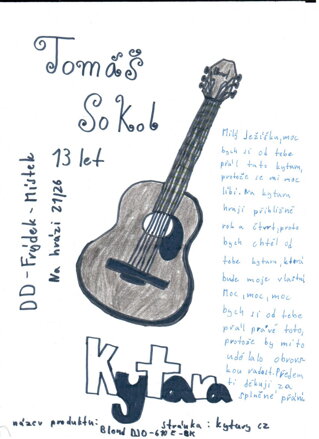 Tomáš
Sokol
13 let
DD-Frýdek-Místek
Na hrázi 21/26
Milý Ježíšku, moc
bych si od tebe
přál tuto kytaru,
protože se mi moc
líbí. Na kytaru
hraji přibližně
rok a čtvrt, proto
bych chtěl od
tebe kytaru, která
bude moje vlastní
Moc, moc, moc
bych si od tebe
přál právě toto,
protože by mi to
udělalo obrov-
skou radost. Předem
ti děkuji za
splněné přání
Kytara
název produktu: stránka: kytary cz
Blond DJO-670 E-BK